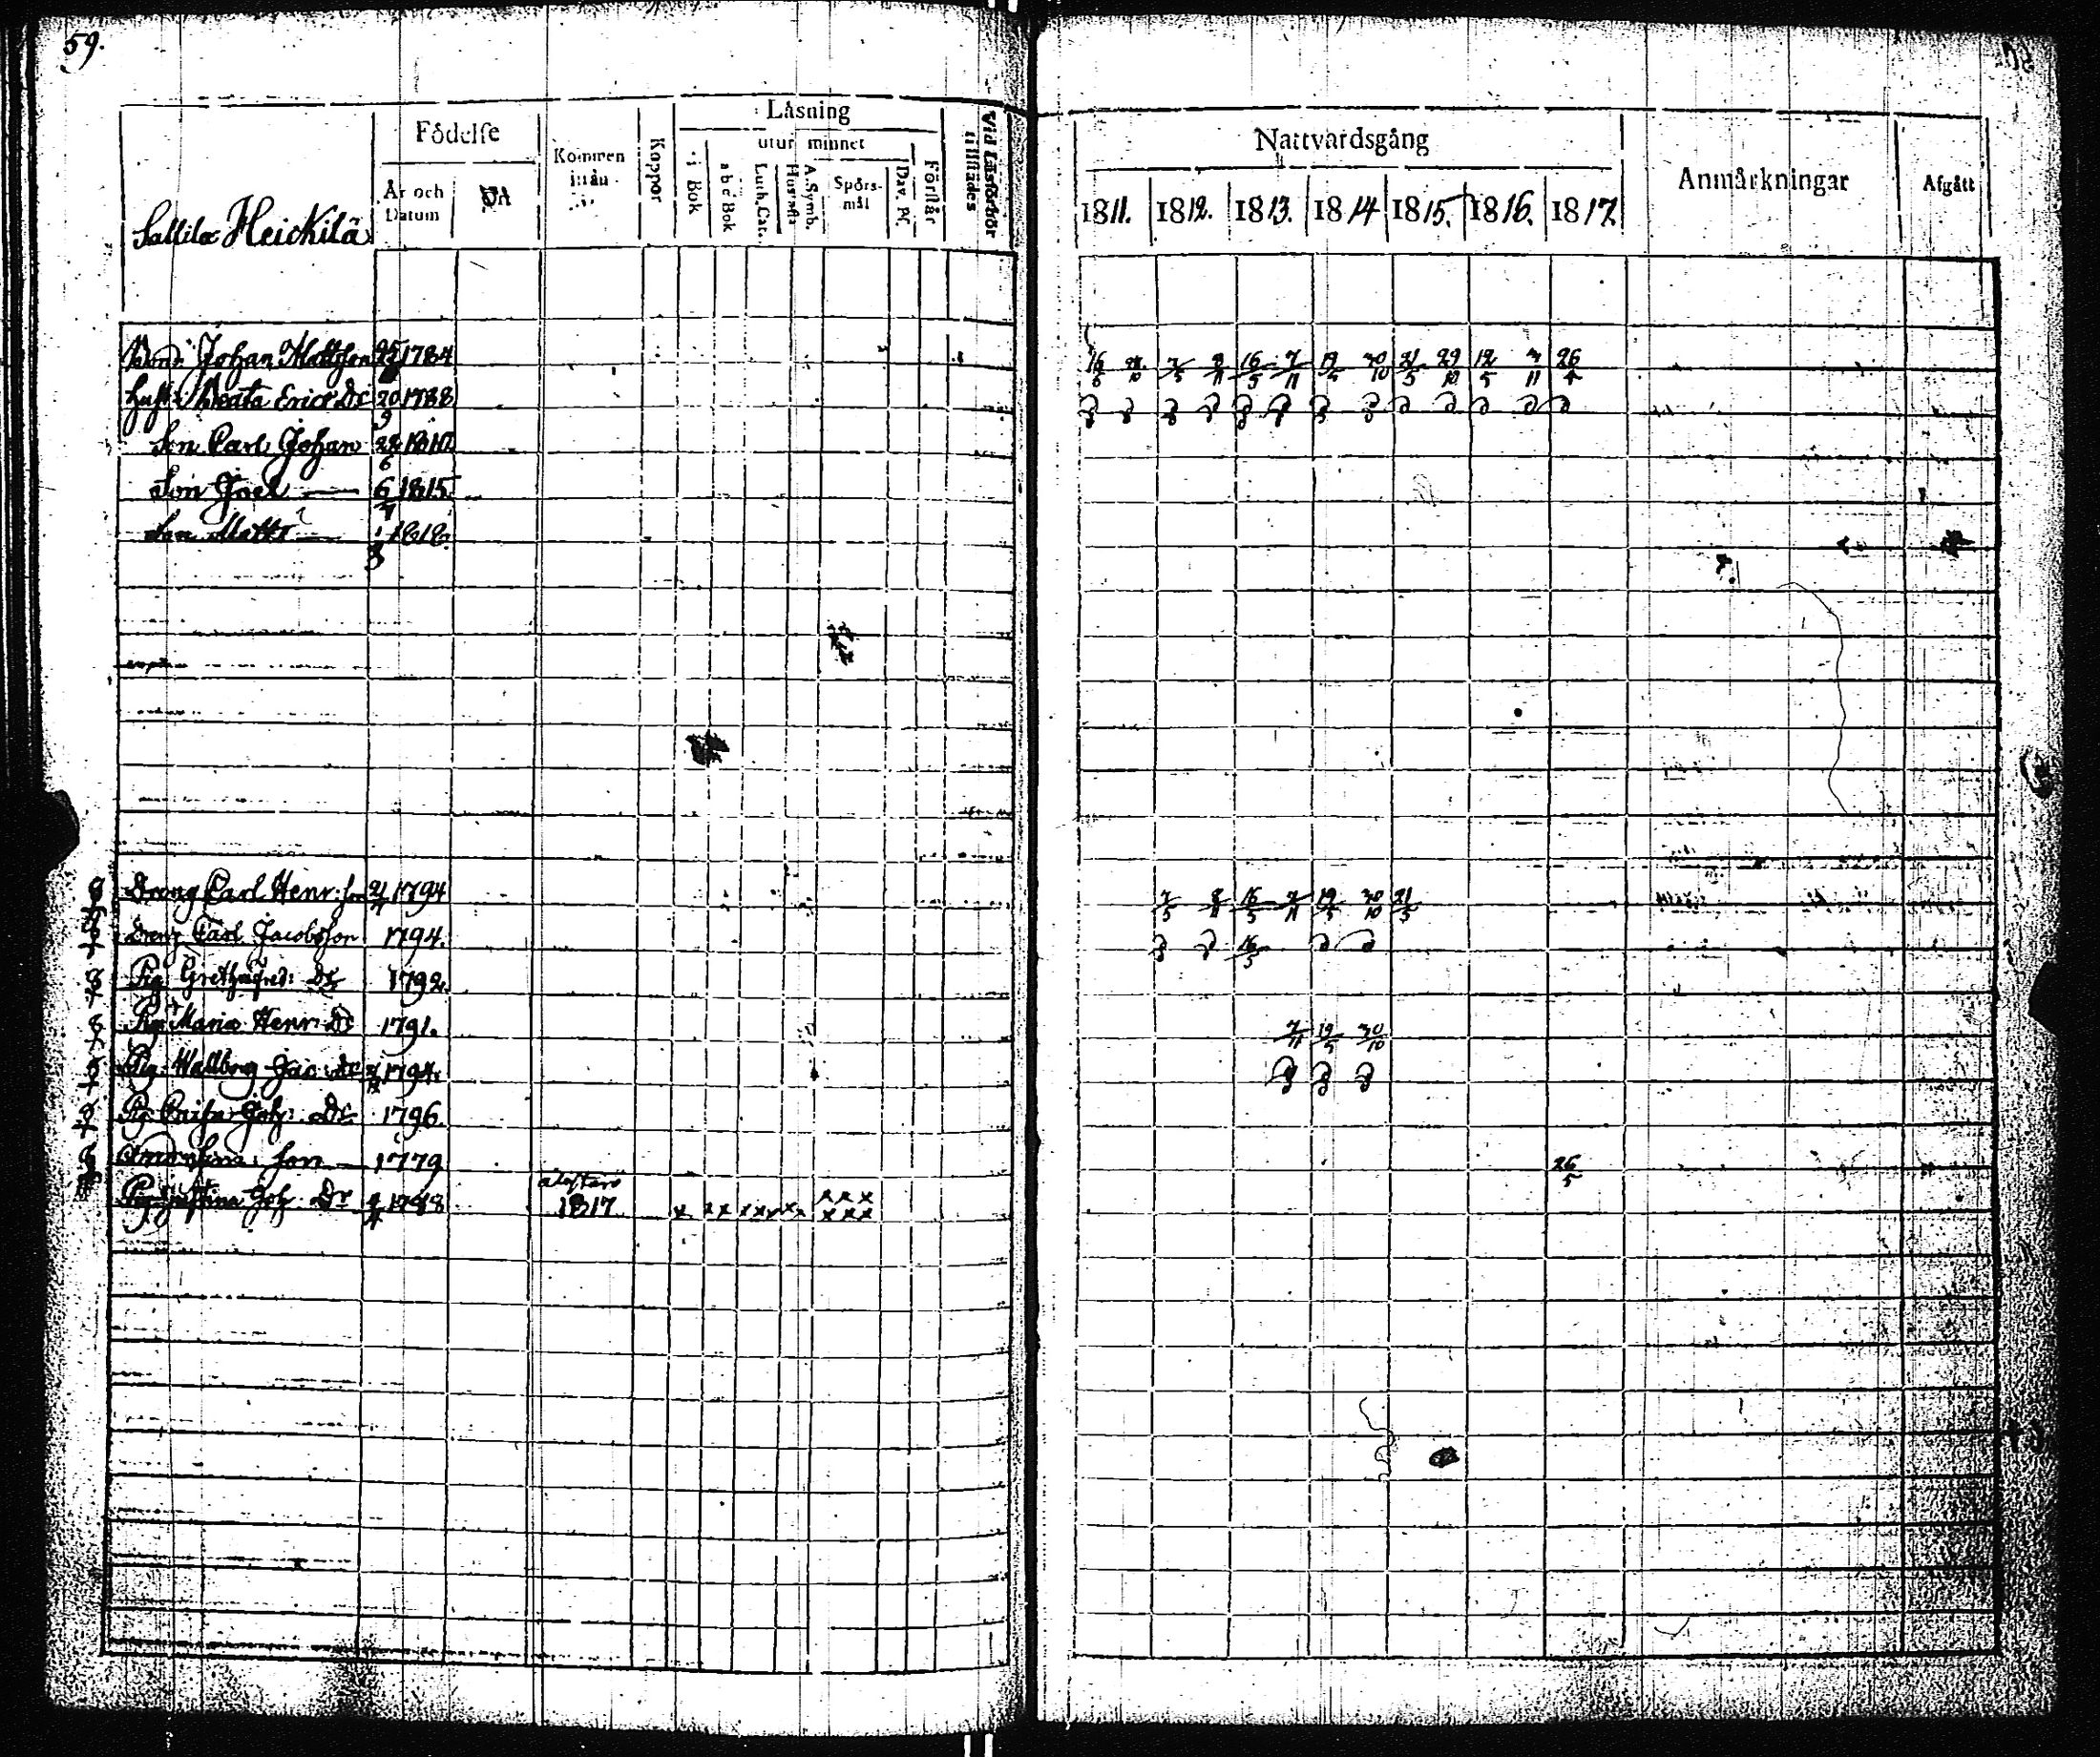 59.
Födelse
År och Datum
Ort
Kommen ifrån
Koppor
Läsning
utur minnet
i Bok
abc Bok
Luth. Cat.
Hustafla
A. Symb.
Spörsmål
Dav. Ps.
Förstår
Vid Läsförhör tillstädes
Nattvardsgång
1811. 1812. 1813. 1814 1815. 1816. 1817.
Anmärkningar
Afgått
Sallila Heickilä
Bond. Johan Mattsson 1784 16/6 7/5 8/11 16/5 7/11 19/5 30/10 21/5 29/10 12/5 26/
Hust. Beata Erics Dr 20/9 1788
Son Carl Johan 22/6 1810
Son Joel — 6/7 1815.
Son Matts — 1/3 1818.
Dreng Carl Henr: son 1794 7/5 8/11 16/5 7/11 19/5 30/10 21/5
Dreng Carl Jacobsson 1794. 16/5
Pig. Dr 1792.
Pig. Maria Henr. Dr 1791. 7/11 19/5 30/10
Pig. Wallborg Jac. Dr 1794.
Pig. Caisa Joh. Dr 1796.
son — 1779 26/5
Pig. Justina Joh. Dr 1817 x xx xxx xx xxx xxx